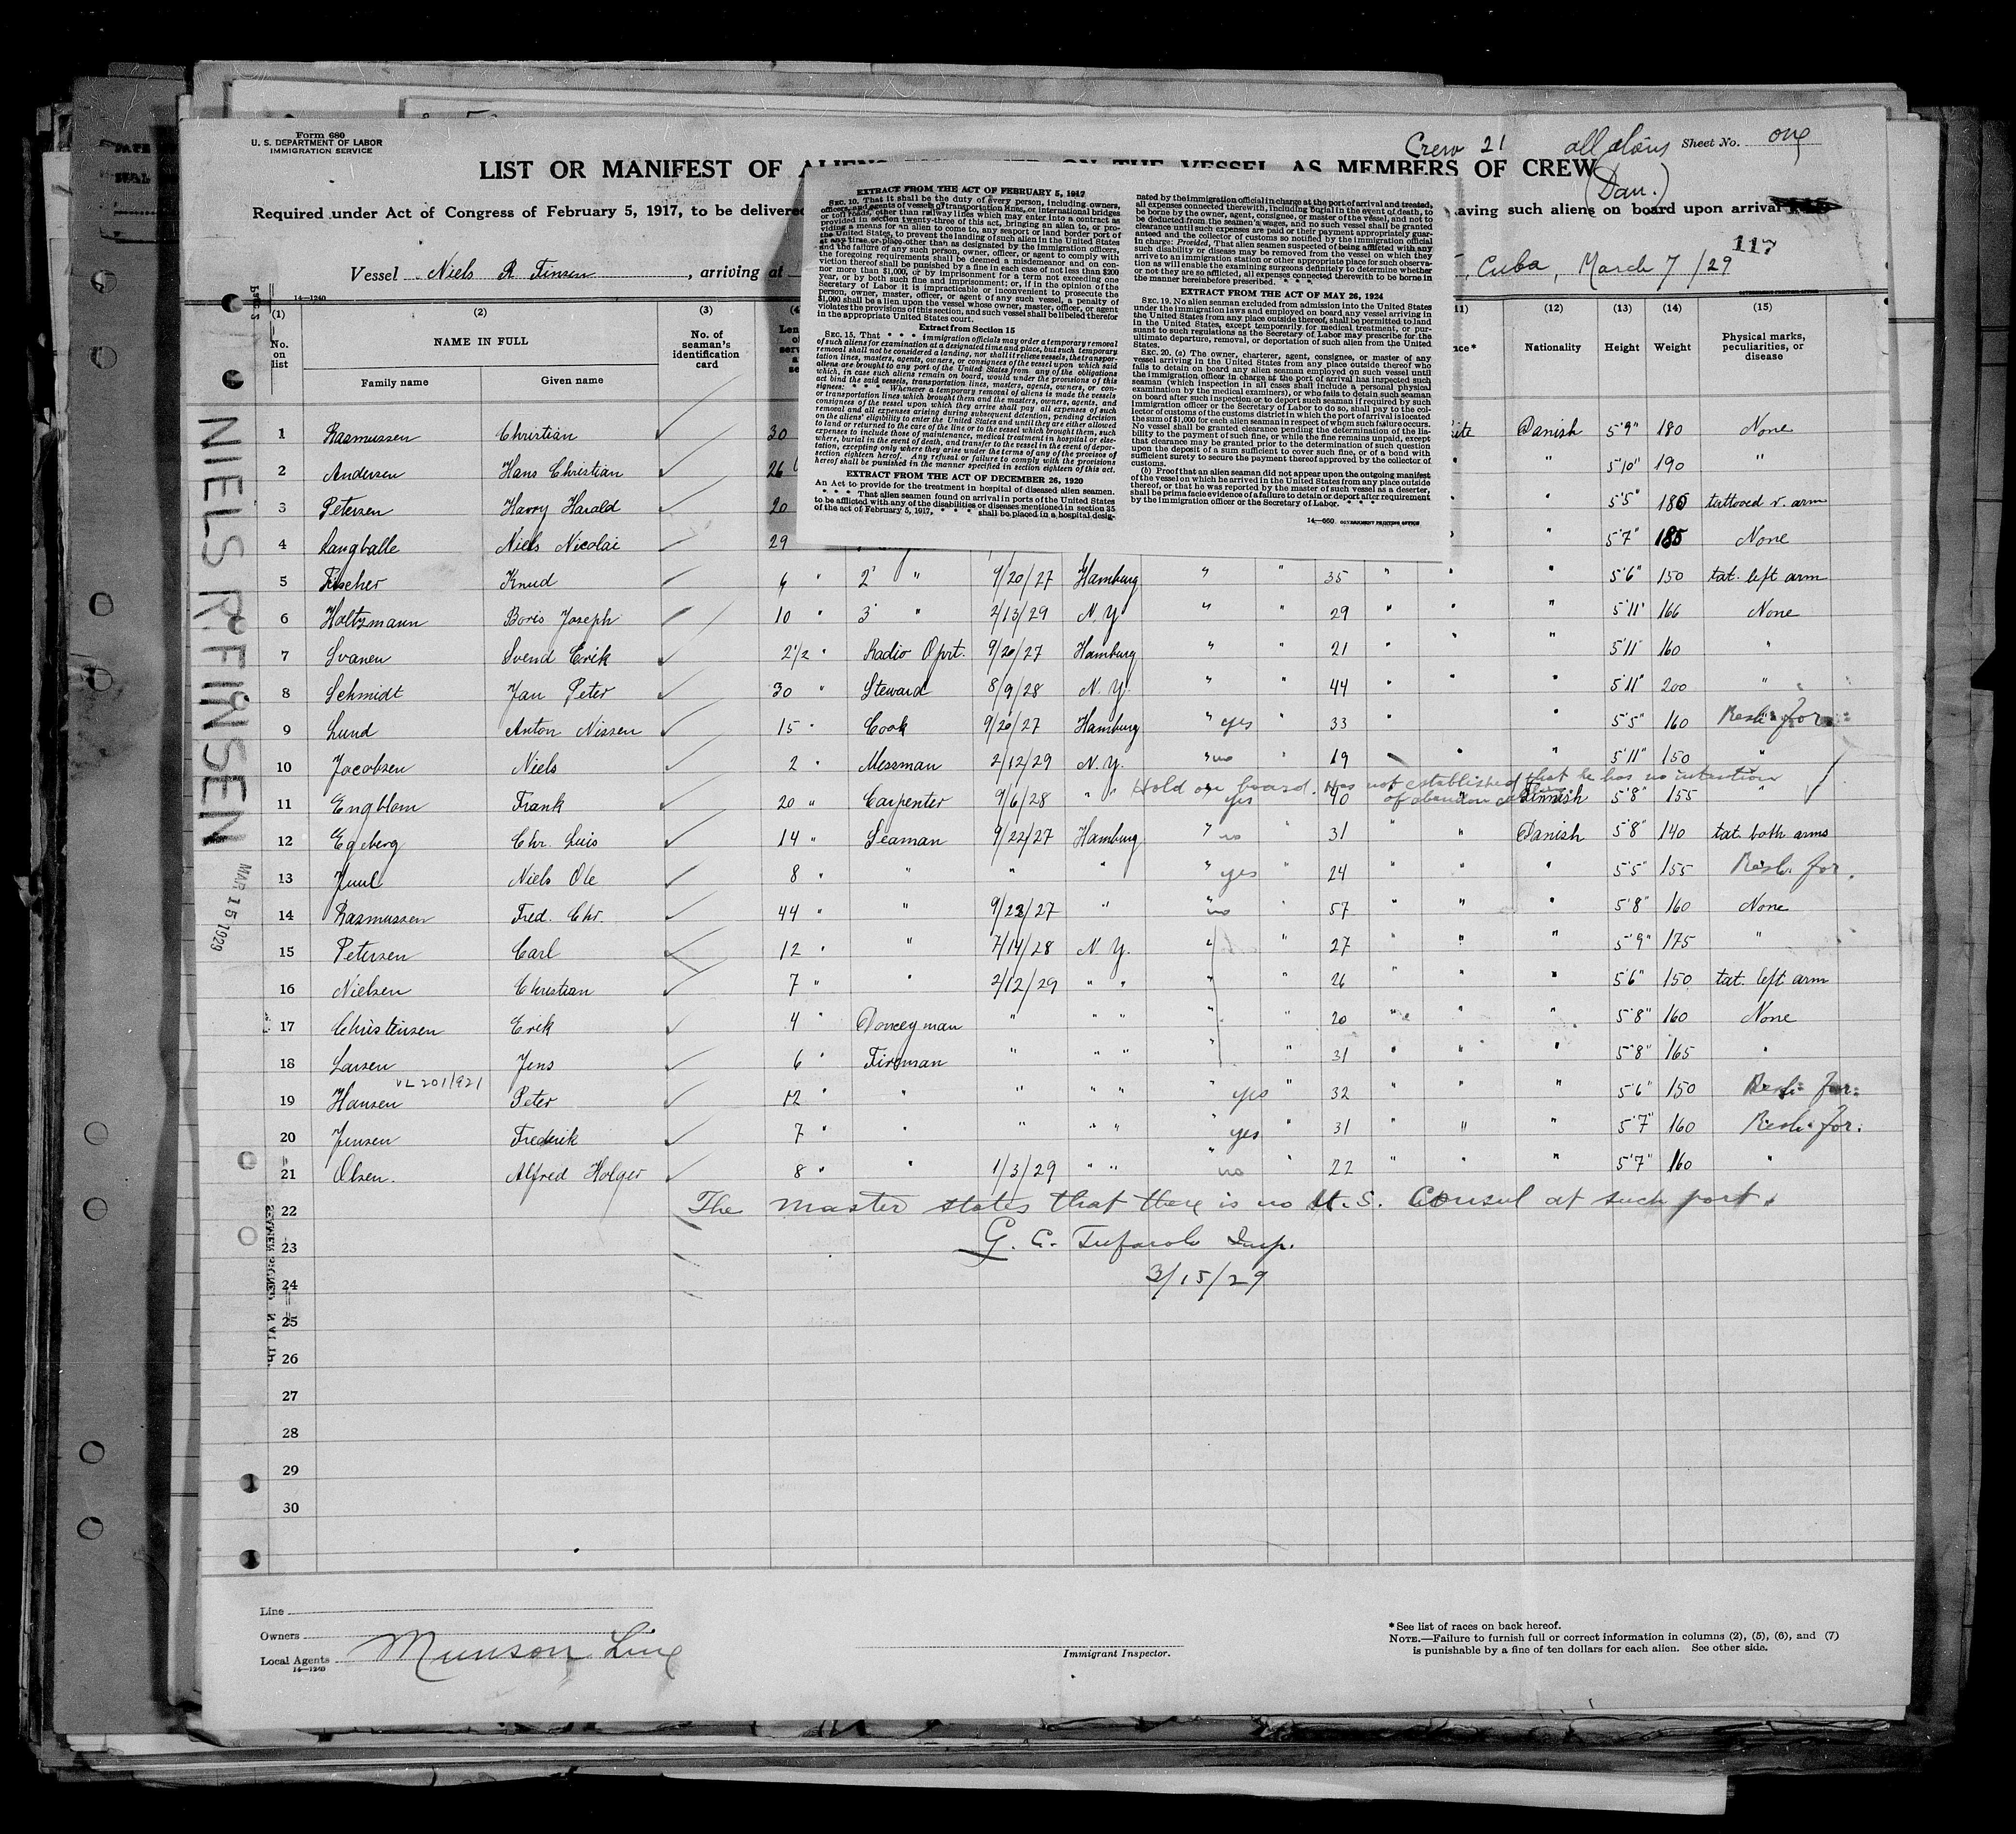 Form 680
U. S. DEPARTMENT OF LABOR
IMMIGRATION SERVICE
Crew 21 all aliens Sheet No. one
(Dan.)
LIST OR MANIFEST OF ALIENS ON THE VESSEL AS MEMBERS OF CREW
Required under Act of Congress of February 5, 1917, to be delivered having such aliens on board upon arrival
117
Vessel Niels R Finsen, arriving at Cuba, March 7/29
14—1240
EXTRACT FROM THE ACT OF FEBRUARY 5, 1917
SEC. 10. That it shall be the duty of every person, including owners,
officers, and agents of vessels of transportation lines, or international bridges
or toll roads, other than railway lines which may enter into a contract as
provided in section twenty-three of this act, bringing an alien to, or pro-
viding a means for an alien to come to, any seaport or land border port of
the United States, to prevent the landing of such alien in the United States
at any time or place other than as designated by the immigration officers,
and the failure of any such person, owner, officer, or agent to comply with
the foregoing requirements shall be deemed a misdemeanor and on con-
viction thereof shall be punished by a fine in each case of not less than $200
nor more than $1,000, or by imprisonment for a term not exceeding one
year, or by both such fine and imprisonment; or, if in the opinion of the
Secretary of Labor it is impracticable or inconvenient to prosecute the
person, owner, master, officer, or agent of any such vessel, a penalty of
$1,000 shall be a lien upon the vessel whose owner, master, officer, or agent
violates the provisions of this section, and such vessel shall be libeled therefor
in the appropriate United States court.
Extract from Section 15
SEC. 15. That * * * immigration officials may order a temporary removal
of such aliens for examination at a designated time and place, but such temporary
removal shall not be considered a landing, nor shall it relieve vessels, the transpor-
tation lines, masters, agents, owners, or consignees of the vessel upon which said
aliens are brought to any port of the United States from any of the obligations
which, in case such aliens remain on board, would under the provisions of this
act bind the said vessels, transportation lines, masters, agents, owners, or con-
signees: * * * Whenever a temporary removal of aliens is made the vessels
or transportation lines which brought them and the masters, owners, agents, and
consignees of the vessel upon which they arrive shall pay all expenses of such
removal and all expenses arising during subsequent detention, pending decision
on the aliens' eligibility to enter the United States and until they are either allowed
to land or returned to the care of the line or to the vessel which brought them, such
expenses to include those of maintenance, medical treatment in hospital or else-
where, burial in the event of death, and transfer to the vessel in the event of depor-
tation, excepting only where they arise under the terms of any of the provisos of
section eighteen hereof. Any refusal or failure to comply with the provisions
hereof shall be punished in the manner specified in section eighteen of this act.
EXTRACT FROM THE ACT OF DECEMBER 26, 1920
An Act to provide for the treatment in hospital of diseased alien seamen.
* * * That alien seamen found on arrival in ports of the United States
to be afflicted with any of the disabilities or diseases mentioned in section 35
of the act of February 5, 1917, * * * shall be placed in a hospital desig-
nated by the immigration official in charge at the port of arrival and treated,
all expenses connected therewith, including burial in the event of death, to
be borne by the owner, agent, consignee, or master of the vessel, and not to
be deducted from the seamen's wages, and no such vessel shall be granted
clearance until such expenses are paid or their payment appropriately guar-
anteed and the collector of customs so notified by the immigration official
in charge: Provided, That alien seamen suspected of being afflicted with any
such disability or disease may be removed from the vessel on which they
arrive to an immigration station or other appropriate place for such observa-
tion as will enable the examining surgeons definitely to determine whether
or not they are so afflicted, all expenses connected therewith to be borne in
the manner hereinbefore prescribed. * * *
EXTRACT FROM THE ACT OF MAY 26, 1924
SEC. 19. No alien seaman excluded from admission into the United States
under the immigration laws and employed on board any vessel arriving in
the United States from any place outside thereof, shall be permitted to land
in the United States, except temporarily for medical treatment, or pur-
suant to such regulations as the Secretary of Labor may prescribe for the
ultimate departure, removal, or deportation of such alien from the United
States.
SEC. 20. (a) The owner, charterer, agent, consignee, or master of any
vessel arriving in the United States from any place outside thereof who
fails to detain on board any alien seaman employed on such vessel until
the immigration officer in charge at the port of arrival has inspected such
seaman (which inspection in all cases shall include a personal physical
examination by the medical examiners), or who fails to detain such seaman
on board after such inspection or to deport such seaman if required by such
immigration officer or the Secretary of Labor to do so, shall pay to the col-
lector of customs of the customs district in which the port of arrival is located
the sum of $1,000 for each alien seaman in respect of whom such failure occurs.
No vessel shall be granted clearance pending the determination of the lia-
bility to the payment of such fine, or while the fine remains unpaid, except
that clearance may be granted prior to the determination of such question
upon the deposit of a sum sufficient to cover such fine, or of a bond with
sufficient surety to secure the payment thereof approved by the collector of
customs.
(b) Proof that an alien seaman did not appear upon the outgoing manifest
of the vessel on which he arrived in the United States from any place outside
thereof, or that he was reported by the master of such vessel as a deserter,
shall be prima facie evidence of a failure to detain or deport after requirement
by the immigration officer or the Secretary of Labor. * * *
14—660 GOVERNMENT PRINTING OFFICE
(1) (2) (3) (11) (12) (13) (14) (15)
No. on list NAME IN FULL Family name Given name No. of seaman's identification card Nationality Height Weight Physical marks, peculiarities, or disease
1 Rasmussen Christian 30 Danish 5'9" 180 None
2 Andersen Hans Christian 26 " 5'10" 190 "
3 Petersen Harry Harald 20 " 5'5" 180 tattooed r. arm
4 Langballe Niels Nicolai 29 " 5'7" 185 None
5 Fischer Knud 6 " 2' " 9/20/27 Hamburg " " 35 " " " 5'6" 150 tat. left arm
6 Holtzmann Boris Joseph 10 " 3' " 2/13/29 N.Y. " " 29 " " " 5'11" 166 None
7 Svanen Svend Erik 2 1/2 " Radio Oprt. 9/20/27 Hamburg " " 21 " " " 5'11 160 "
8 Schmidt Jan Peter 30 " Steward 8/9/28 N.Y. " " 44 " " " 5'11" 200 "
9 Lund Anton Nissen 15 " Cook 9/20/27 Hamburg " yes " 33 " " 5'5" 160
10 Jacobsen Niels 2 " Messman 2/12/29 N.Y. " no " 19 " " 5'11" 150 "
Hold on board. Has not established that he has no intention
of abandon
11 Engblom Frank 20 " Carpenter 9/6/28 " " yes 40 " Finnish 5'8" 155 "
12 Egeberg Chr. Luis 14 " Seaman 9/22/27 Hamburg " no " 31 " " Danish 5'8" 140 tat. both arms
13 Juul Niels Ole 8 " " " " " yes " 24 " " " 5'5" 155
14 Rasmussen Fred. Chr. 44 " " 9/23/27 " " no 57 " " " 5'8" 160 None
15 Petersen Carl 12 " " 7/14/28 N.Y. " " 27 " " " 5'9" 175 "
16 Nielsen Christian 7 " " 2/12/29 " " " " 26 " " " 5'6" 150 tat. left arm
17 Christensen Erik 4 " Donceyman " " " " " 20 " " " 5'8" 160 None
18 Larsen Jens 6 " Fireman " " " " " 31 " " " 5'8" 165 "
VL 201/921
19 Hansen Peter 12 " " " " " " yes " 32 " " " 5'6" 150
20 Jensen Frederik 7 " " " " " yes " 31 " " " 5'7" 160
21 Olsen. Alfred Holger 8 " " 1/3/29 " " " no " 22 " " " 5'7" 160 "
22 The master states that there is no U.S. Consul at such port.
23 G. C. Insp.
24 3/15/29
25
26
27
28
29
30
NIELS R. FINSEN
MAR 15 1929
Line
Owners
Local Agents Munson Line
14—1240
Immigrant Inspector.
*See list of races on back hereof.
NOTE.—Failure to furnish full or correct information in columns (2), (5), (6), and (7)
is punishable by a fine of ten dollars for each alien. See other side.